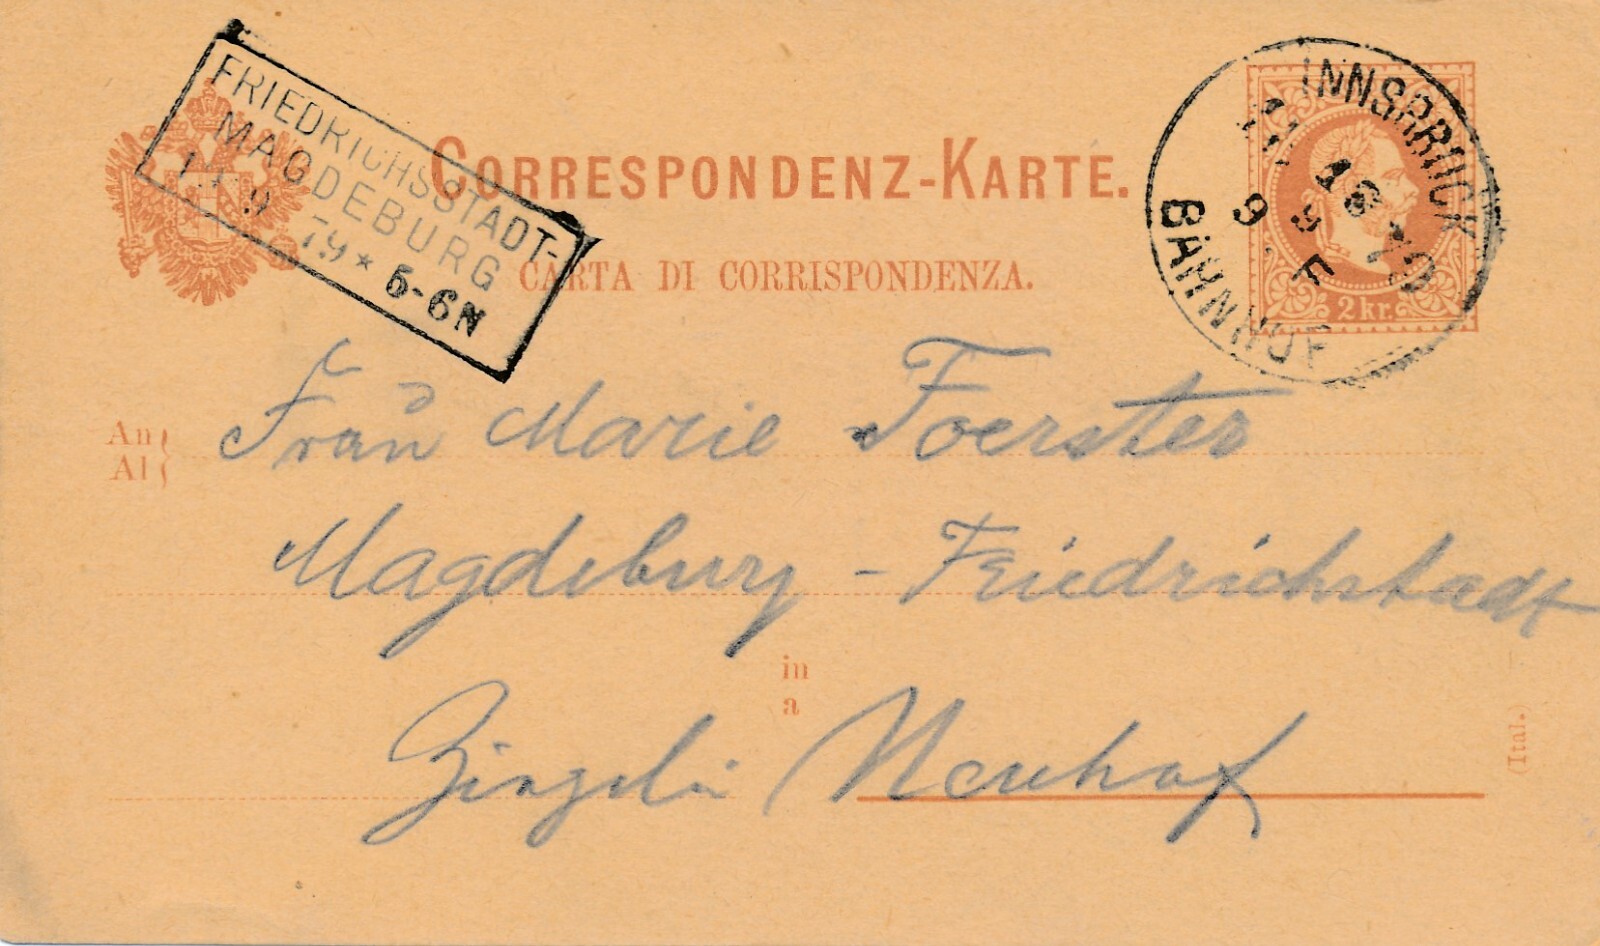 FRIEDRICHSSTADT-
MAGDEBURG
9 79 * 5-6N
CORRESPONDENZ-KARTE.
CARTA DI CORRISPONDENZA.
INNSBRUCK
18 79
9 F
BAHNHOF
2 kr.
An
Al
Frau Marie Foerster
Magdeburg - Friedrichstadt
in
a
Ziegelei Neuhof
(Ital.)